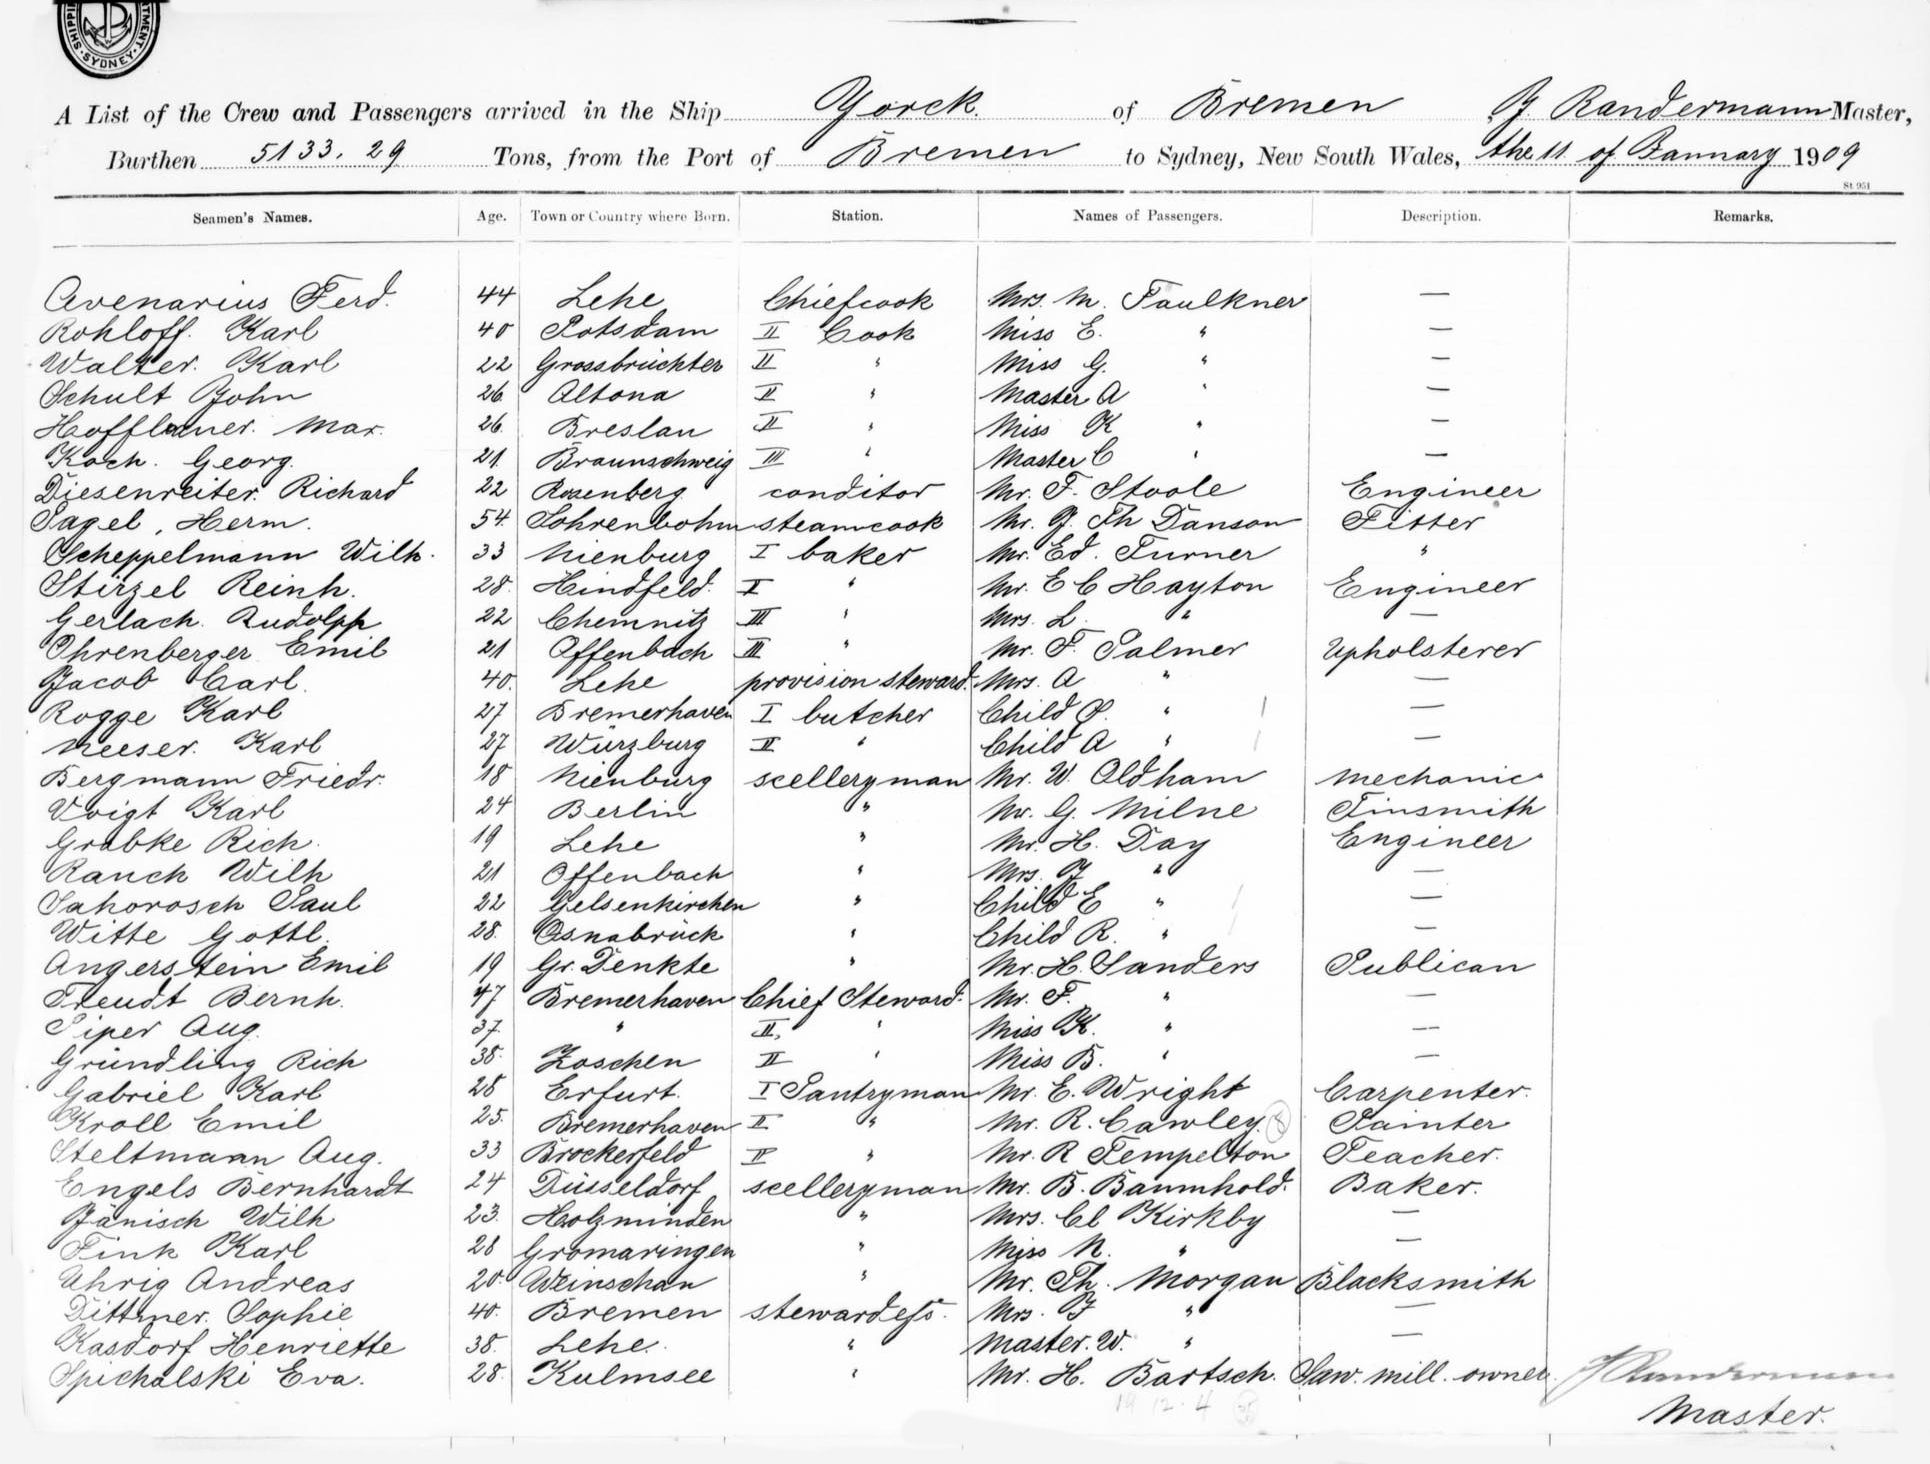 SHIPPI TMENT. SYDNEY.
A List of the Crew and Passengers arrived in the Ship Yorck. of Bremen J. Randermann Master,
Burthen 5133.29 Tons, from the Port of Bremen to Sydney, New South Wales, the 11 of January 1909
St 951
Seamen's Names. Age. Town or Country where Born. Station. Names of Passengers. Description. Remarks.
Avenarius Ferd. 44 Lehe Chiefcook Mrs. M. Faulkner —
Rohloff. Karl 40 Potsdam II Cook Miss E. " —
Walter. Karl 22 Grossbrüchter II " Miss G. " —
Schult John 26 Altona II " Master A " —
Hofflaner. Max. 26 Breslau II " Miss K " —
Koch. Georg. 21. Braunschweig III " Master C " —
Diesenreiter. Richard 22 Rosenberg conditor Mr. F. Stoole Engineer
Pagel, Herm. 54. Sohrenbohm steamcook Mr. J. Th Danson Fitter
Scheppelmann Wilh. 33 Nienburg I baker Mr. Ed. Turner "
Stirzel Reinh. 28. Hindfeld. II " Mr. E C Hayton Engineer
Gerlach. Rudolph 22 Chemnitz III " Mrs. L. " —
Ohrenberger Emil 21 Offenbach III " Mr. F. Palmer Upholsterer
Jacob Carl. 40. Lehe provision steward. Mrs. A " —
Rogge Karl 27 Bremerhaven I butcher Child O. " —
Neeser. Karl 27 Würzburg II " Child A " —
Bergmann Friedr. 18 Nienburg scelleryman Mr. W. Oldham Mechanic
Voigt Karl 24 Berlin " Mr. G. Milne Tinsmith
Grabke Rich. 19 Lehe " Mr. H. Day Engineer
Ranch Wilh 21 Offenbach " Mrs. J " —
Sahorosch Paul 22 Gelsenkirchen " Child E " —
Witte Gottl. 28. Osnabrück " Child R. " —
Angerstein Emil 19 Gr. Denkte " Mr. H. Sanders Publican
Freudt Bernh. 47 Bremerhaven Chief Steward. Mr. F. " —
Piper Aug. 37. " II. " Miss K. " —
Gründling Rich 38. Zoschen II " Miss B. " —
Gabriel Karl 28 Erfurt. I Pantryman Mr. E. Wright Carpenter.
Kroll Emil 25. Bremerhaven II " Mr. R. Cawley. Painter
Steltmann Aug. 33 Brockerfeld II " Mr. R Tempelton Teacher.
Engels Bernhardt 24 Düsseldorf scelleryman Mr. B. Baumhold. Baker.
Jänisch Wilh 23. Holzminden " Mrs. Cl Kirkby —
Fink Karl 28 Gromaringen " Miss N. " —
Uhrig Andreas 20. Weinschan " Mr. Th. Morgan Blacksmith
Dittmer. Sophie 40. Bremen stewardess. Mrs. J " —
Kasdorf Henriette 38. Lehe. " Master. W. " —
Spichalski Eva. 28. Kulmsee " Mr. H. Bartsch. Saw. mill. owner. J Randermann
Master.